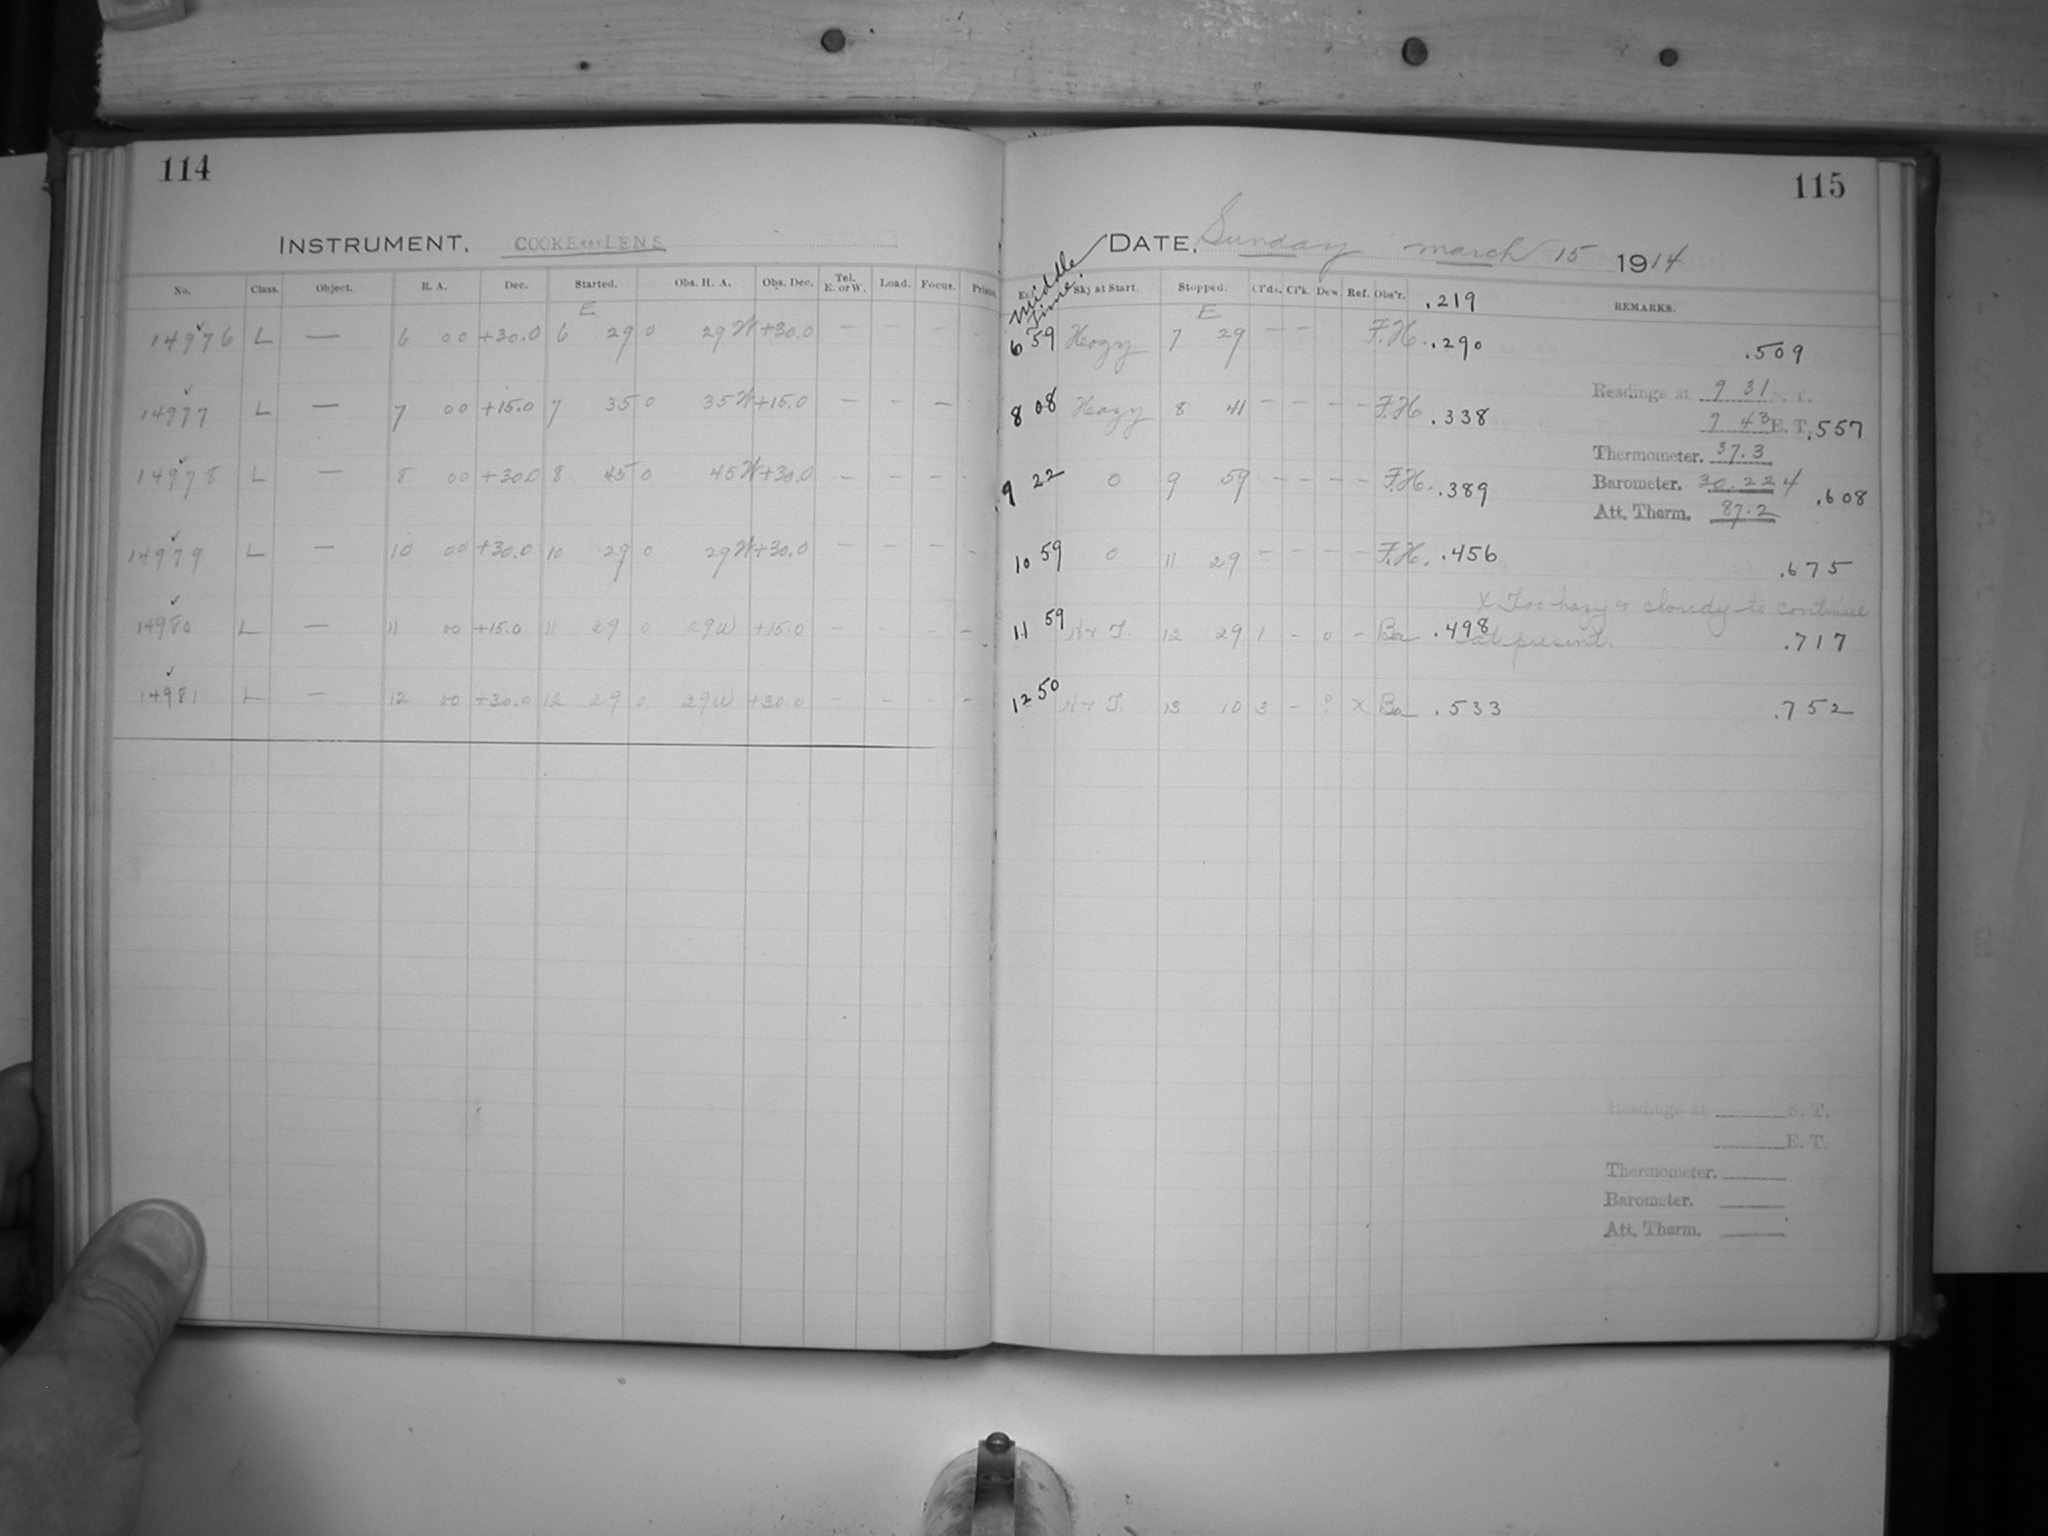 114
INSTRUMENT. COOKE LENS
No. Class. Object. R. A. Dec. Started. Obs. H. A. Obs. Dec. Tel. E. or W. Load. Focus.
E
14976 L — 6 00 +30.0 6 29 0 29 W +30.0 — — — -
14977 L — 7 00 +15.0 7 35 0 35 W +15.0 — — —
14978 L — 8 00 +30.0 8 45 0 45 W +30.0 — — — -
14979 L — 10 00 +30.0 10 29 0 29 W +30.0 — — — -
14980 L — 11 00 +15.0 11 29 0 29 W +15.0 — - - -
14981 L — 12 00 +30.0 12 29 0 29 W +30.0 — - - -
115
DATE. Sunday March 15 1914
Middle Time.
Sky at Start. Stopped. Cl'ds. Cl'k. Dew. Ref. Obs'r. .219 REMARKS.
E
6 59 Hazy 7 29 — — F.H. .290 .509
Readings at 9 31 S. T.
8 08 Hazy 8 41 — — — — F.H. .338
9 43 E. T. .557
Thermometer. 37.3
9 22 0 9 59 — — — — F.H. .389
Barometer. 30.224 .608
Att. Therm. 87.2
10 59 0 11 29 — — — — F.H. .456 .675
X Too hazy & cloudy to continue
11 59 12 29 1 - 0 - Ba .498 at present. .717
12 50 13 10 3 - ? X Ba .533 .752
Readings at S. T.
E. T.
Thermometer.
Barometer.
Att. Therm.